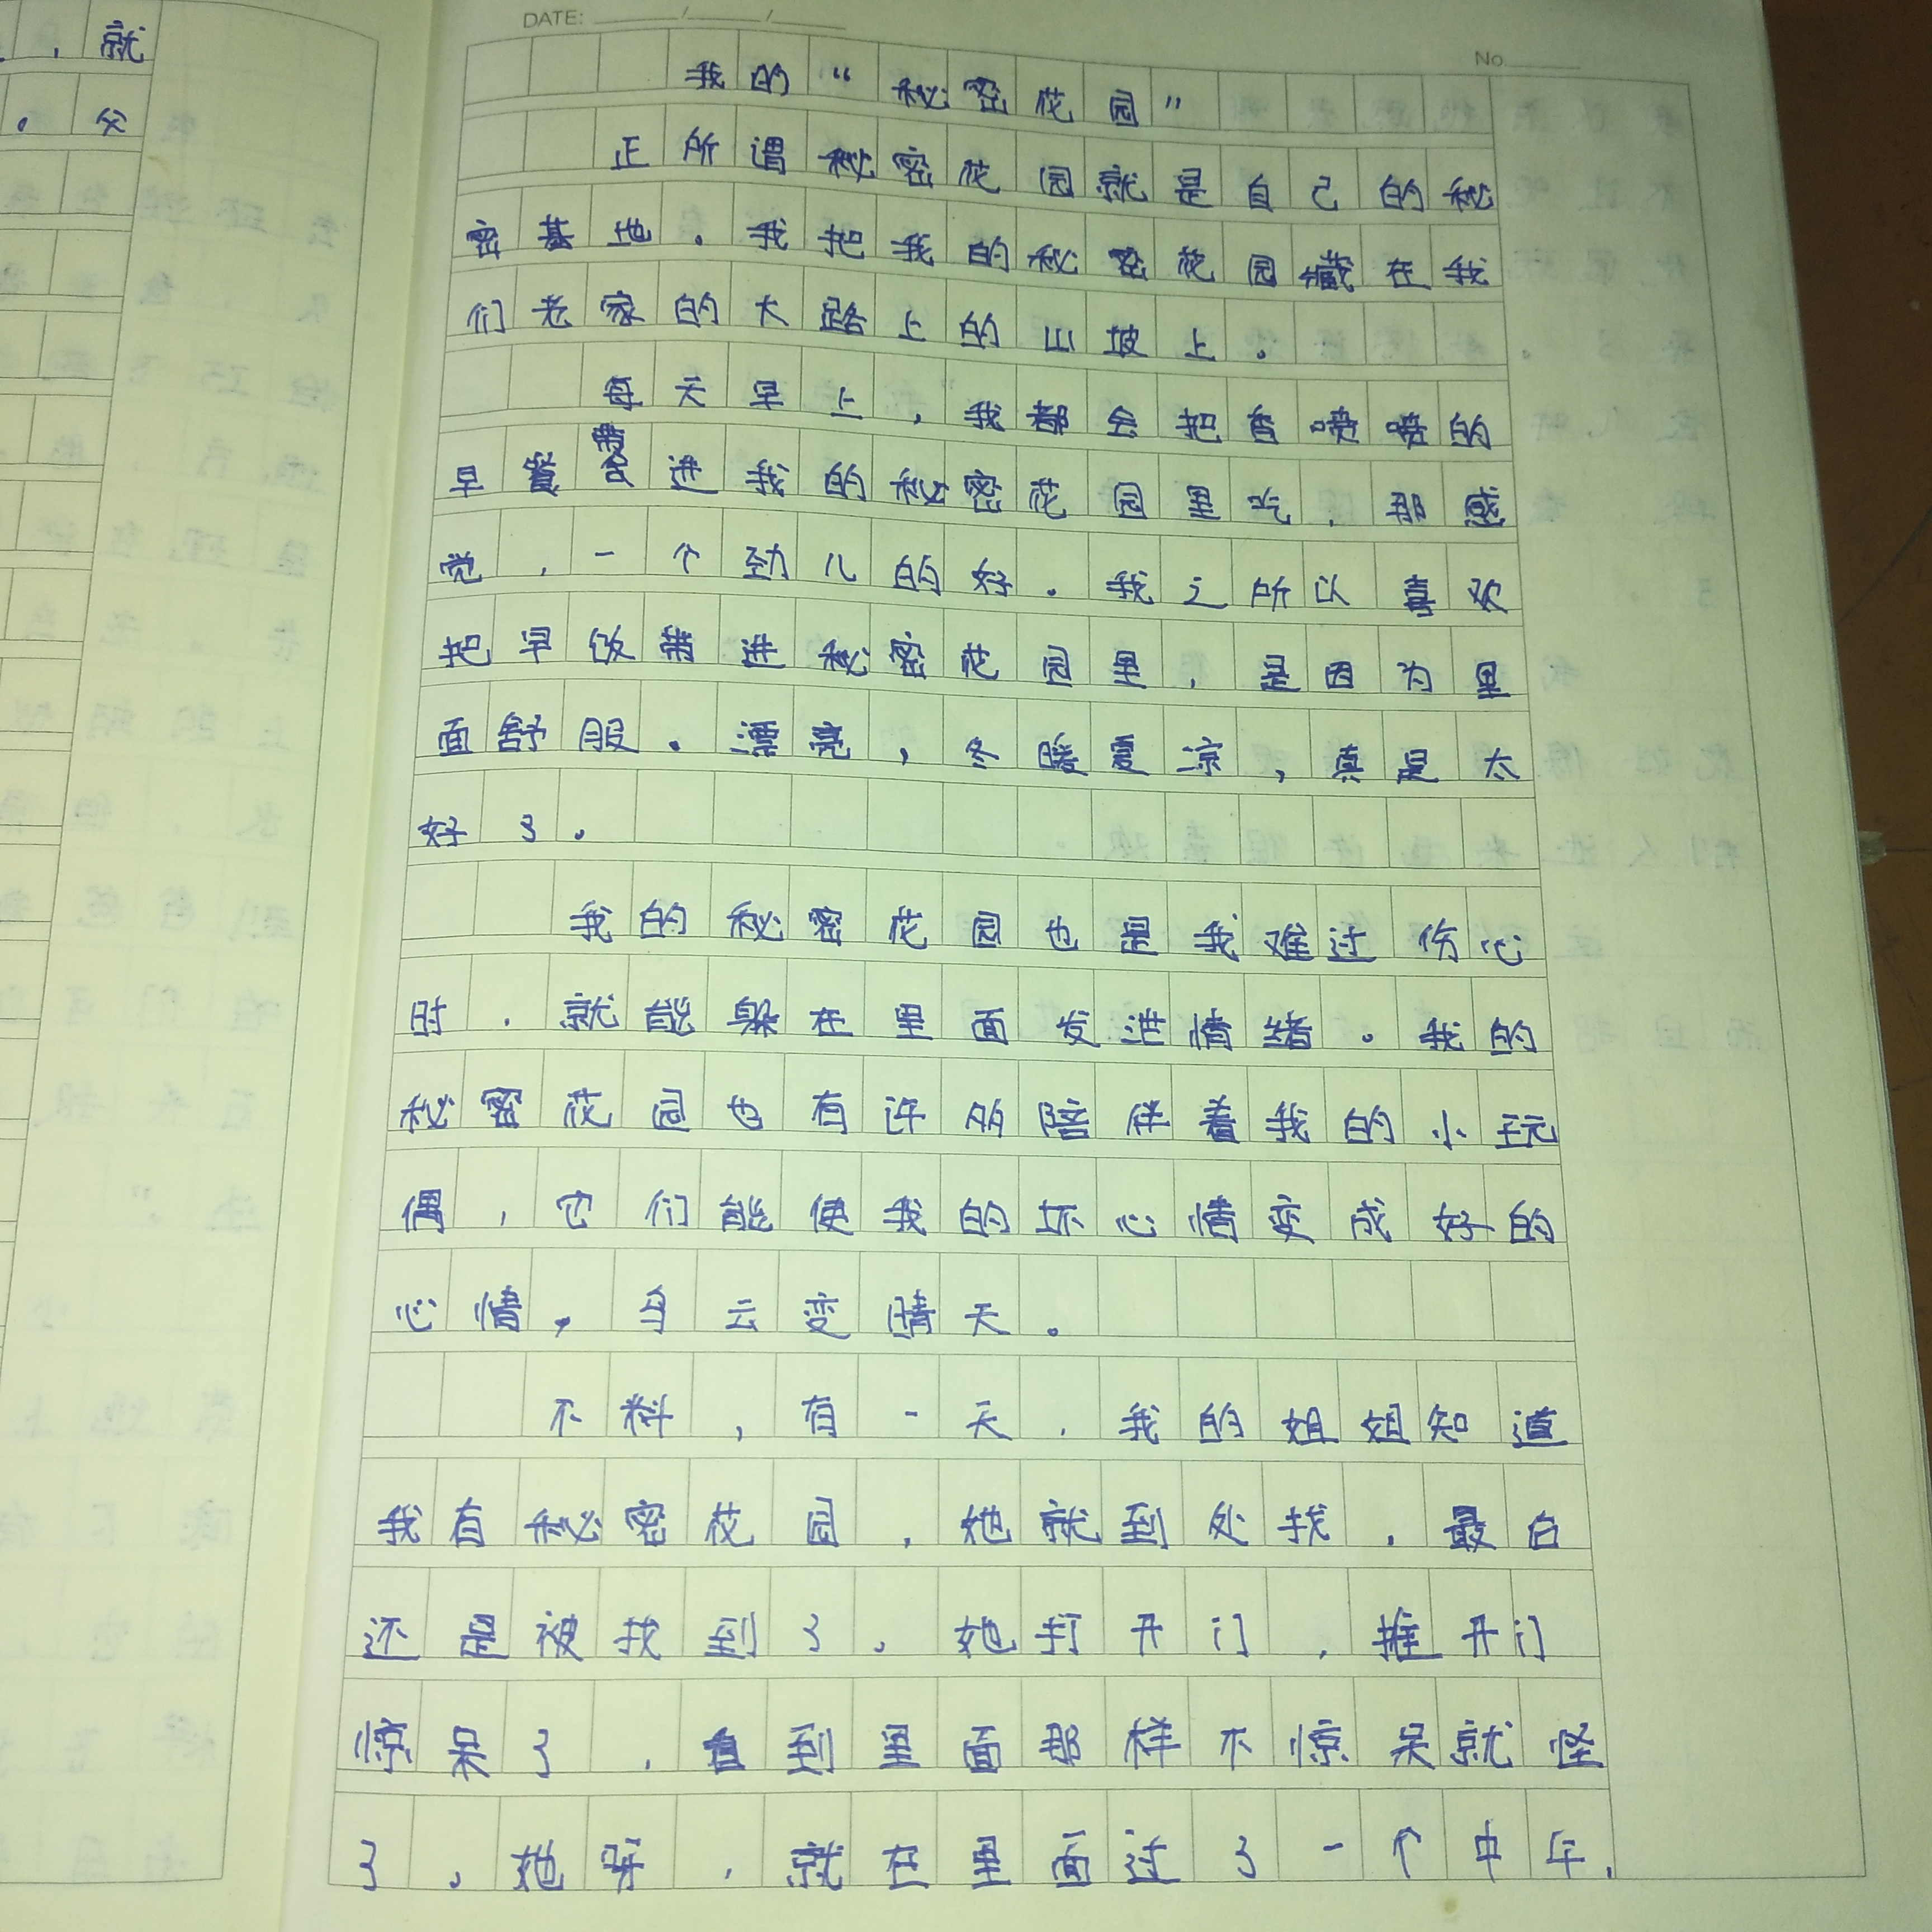 ，就
。父
DATE: ____/____/____
No
我的“秘密花园”
正所谓秘密花园就是自己的秘
密基地。我把我的秘密花园藏在我
们老家的大路上的山坡上。
每天早上，我都会把香喷喷的
早餐带进我的秘密花园里吃，那感
觉，一个劲儿的好。我之所以喜欢
把早饭带进秘密花园里，是因为里
面舒服。漂亮，冬暖夏凉，真是太
好了。
我的秘密花园也是我难过伤心
时，就能躲在里面发泄情绪。我的
秘密花园也有许多陪伴着我的小玩
偶，它们能使我的坏心情变成好的
心情，乌云变晴天。
不料，有一天，我的姐姐知道
我有秘密花园，她就到处找，最后
还是被找到了。她打开门，推开门
惊呆了，看到里面那样不惊呆就怪
了。她呀，就在里面过了一个中午，